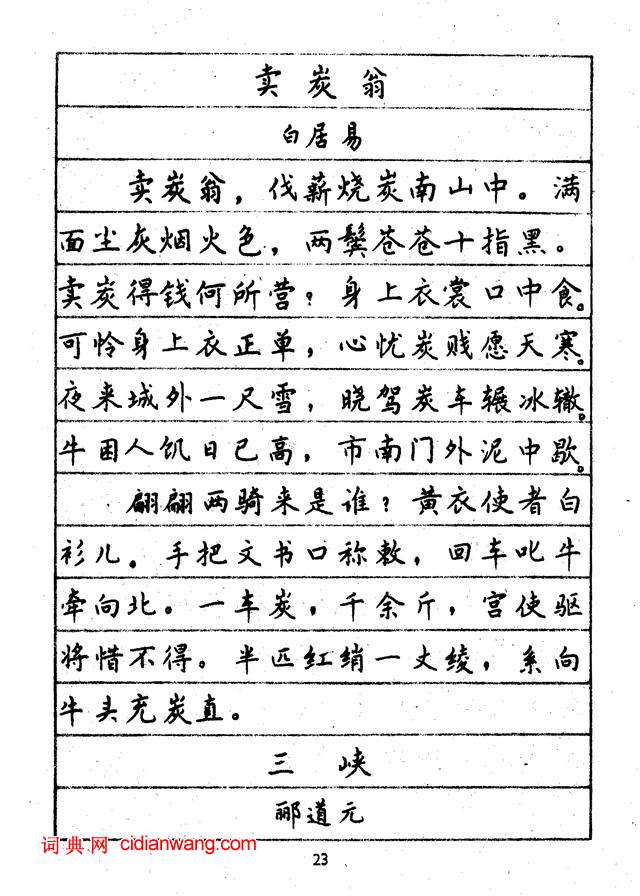 卖炭翁
白居易
卖炭翁，伐薪烧炭南山中。满
面尘灰烟火色，两鬓苍苍十指黑。
卖炭得钱何所营？身上衣裳口中食。
可怜身上衣正单，心忧炭贱愿天寒。
夜来城外一尺雪，晓驾炭车辗冰辙。
牛困人饥日已高，市南门外泥中歇。
翩翩两骑来是谁？黄衣使者白
衫儿。手把文书口称敕，回车叱牛
牵向北。一车炭，千余斤，宫使驱
将惜不得。半匹红绡一丈绫，系向
牛头充炭直。
三峡
郦道元
词典网 cidianwang.com
23